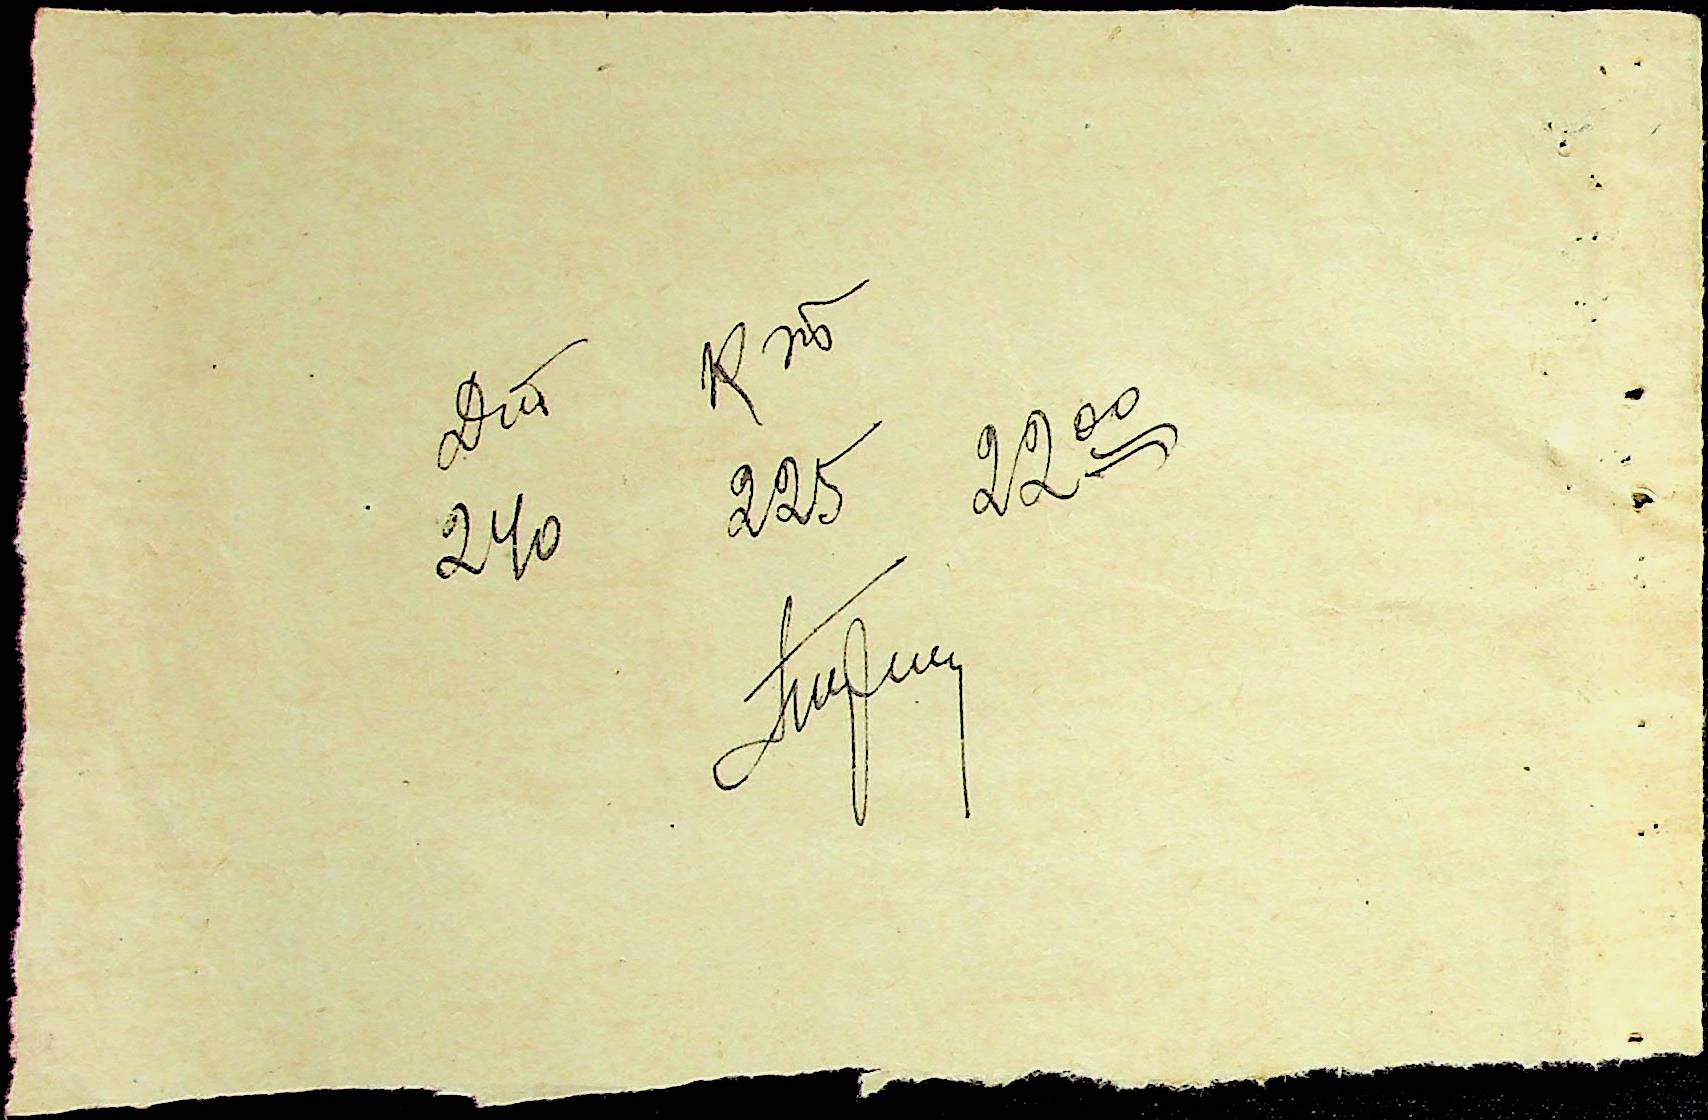 Дт Кт
240 225 22 00